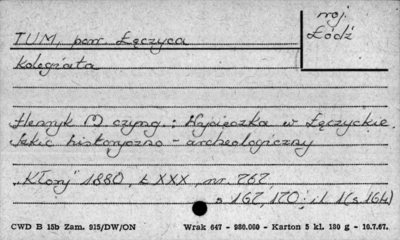 woj.
Łódź
TUM, pow. Łęczyca
Kolegiata
Henryk M czyng.: Wycieczka w Łęczyckie.
Szkic historyczno - archeologiczny
"Kłosy" 1880, t. XXX, nr. 767,
s 167, 170; il 1 (s 164)
CWD B 15b Zam. 915/DW/ON Wrak 647 - 980.000 - Karton 5 kl. 180 g - 10.7.67.